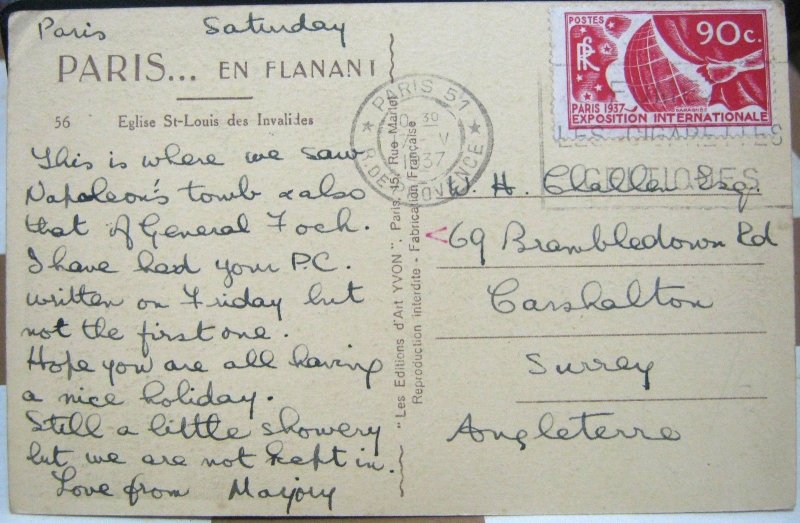 Paris Saturday
PARIS... EN FLANANT
56 Eglise St-Louis des Invalides
This is where we saw
Napoleon's tomb & also
that of General Foch.
I have had your P.C.
written on Friday but
not the first one.
Hope you are all having
a nice holiday.
Still a little showery
but we are not kept in.
Love from Marjory
"Les Editions d'Art YVON", Paris, 15, Rue Martel
Reproduction interdite - Fabrication Française
PARIS 51
30
V
37
R. DE PROVENCE
POSTES
RF
90c.
PARIS 1937
EXPOSITION INTERNATIONALE
LES CIGARETTES
W. H. Challen Esq.
69 Brambledown Rd
Carshalton
Surrey
Angleterre